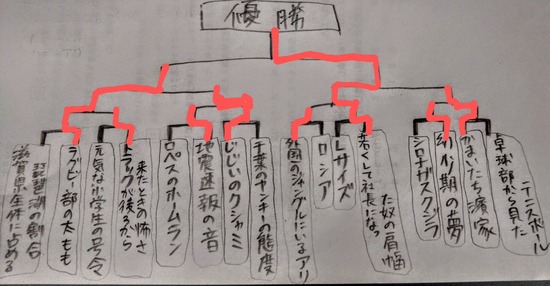 優勝
滋賀県全体に占める
琵琶湖の割合
ラグビー部の太もも
元気な小学生の号令
トラックが後ろから
来たときの怖さ
ロペスのホームラン
地震速報の音
じじいのクシャミ
千葉のヤンキーの態度
外国のジャングルにいるアリ
ロシア
Lサイズ
若くして社長になっ
た奴の肩幅
シロナガスクジラ
幼少期の夢
かまいたち濱家
卓球部から見た
テニスボール